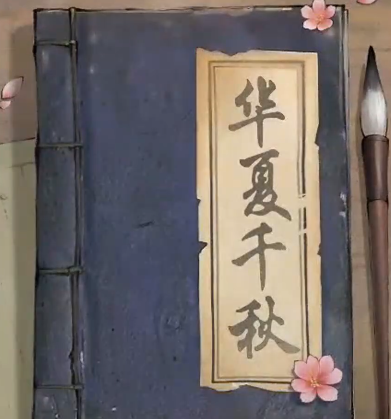 华夏千秋